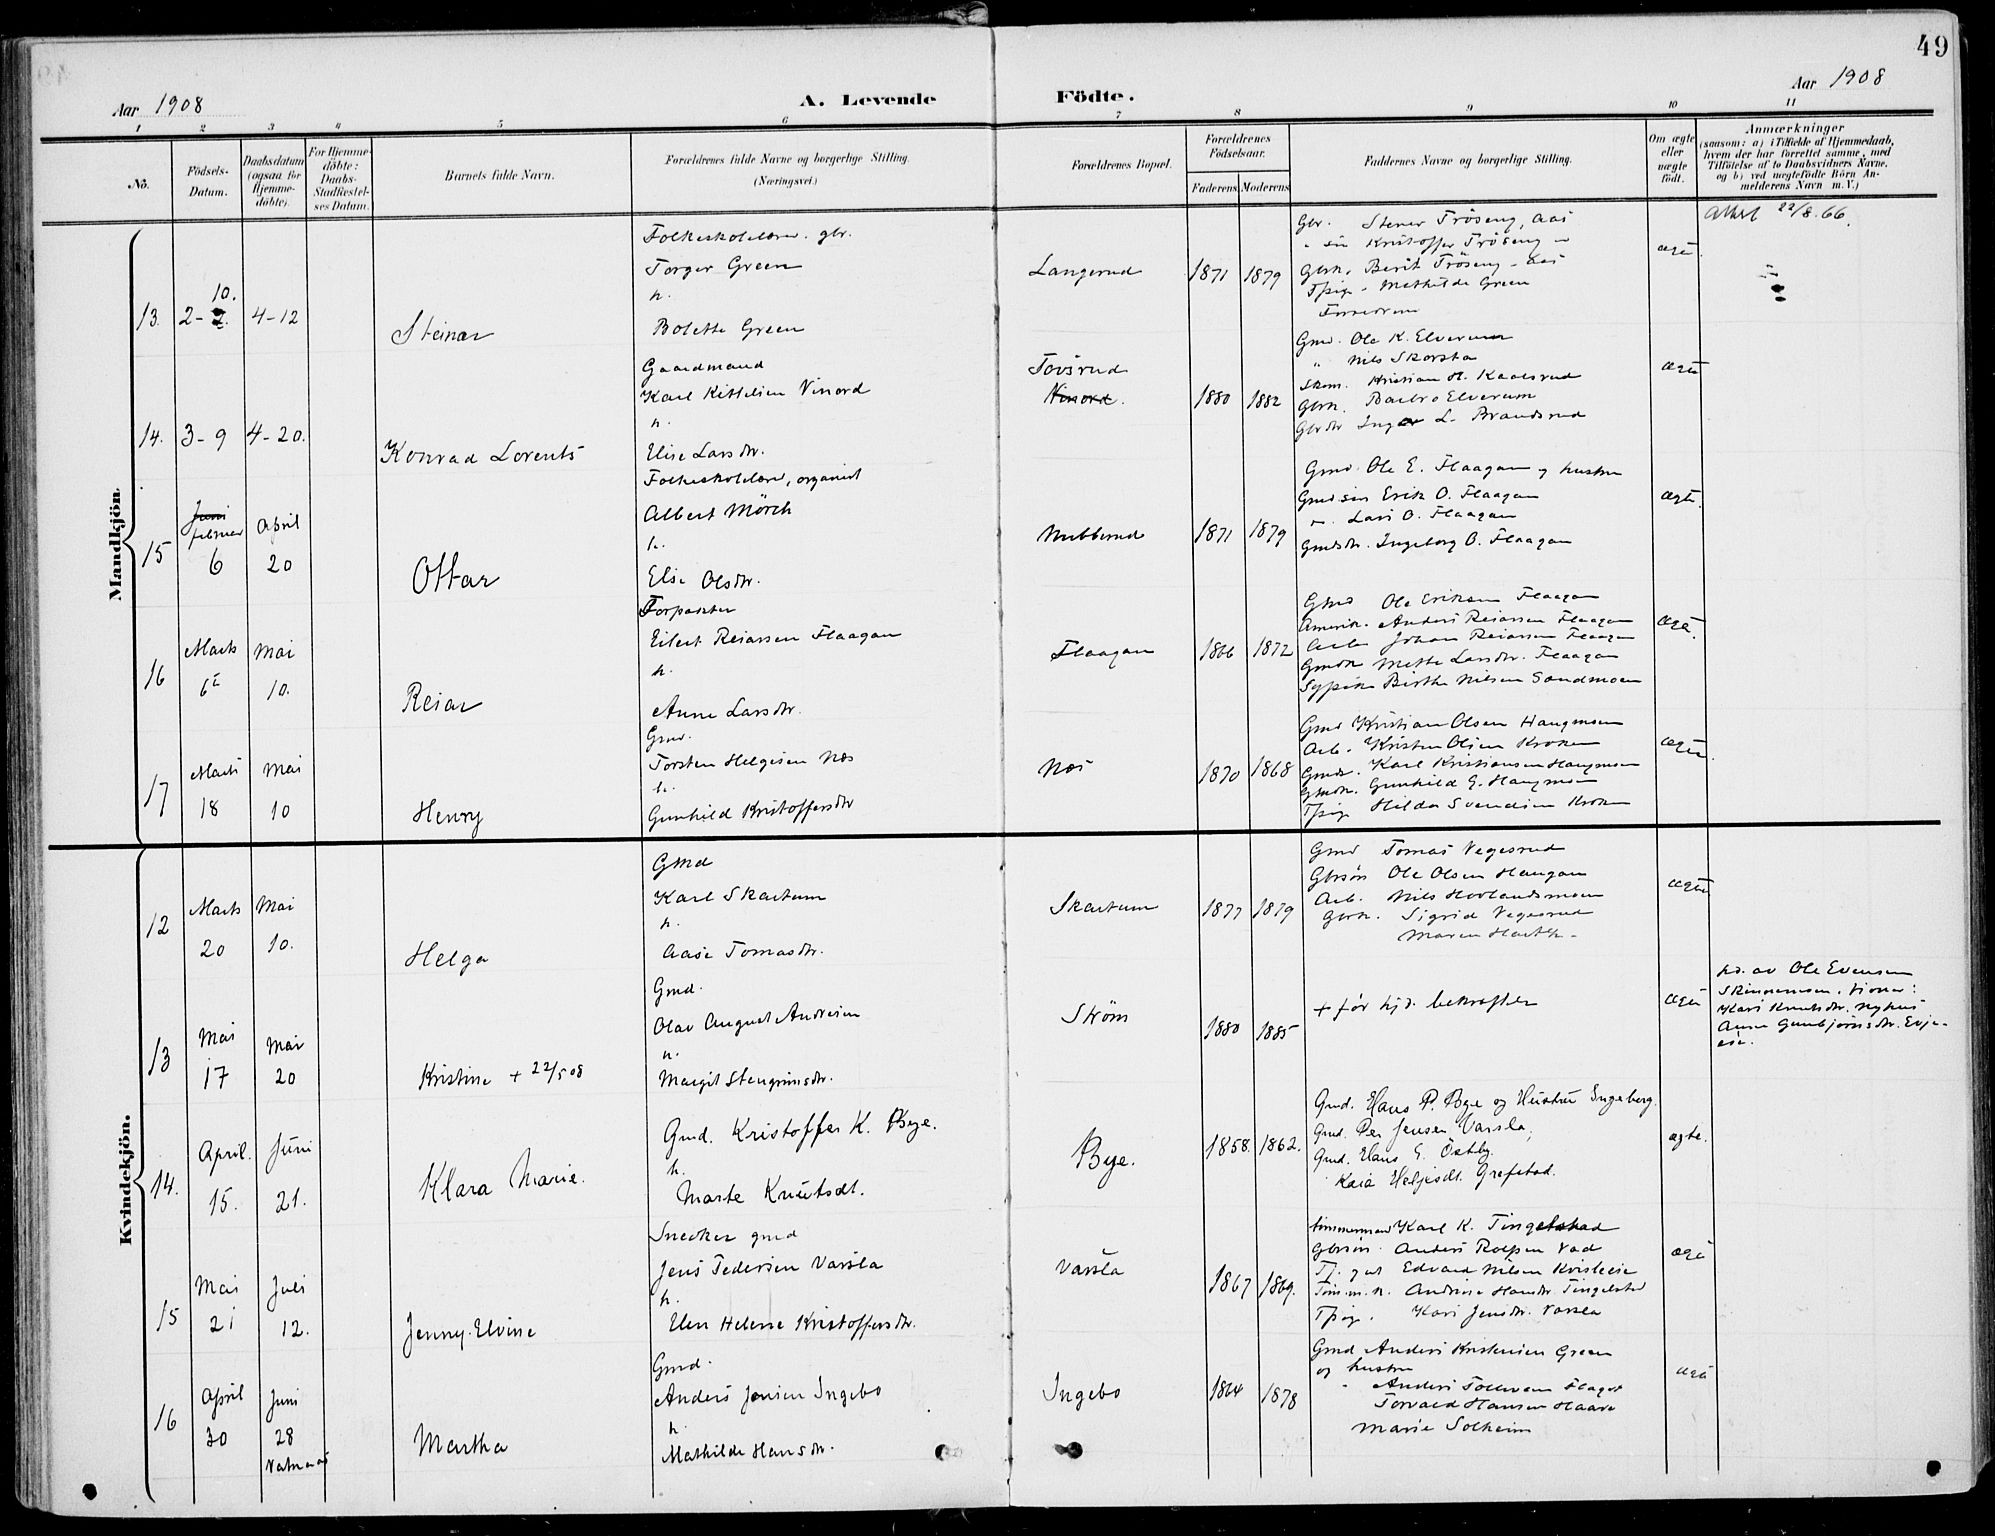 49
Aar 1908
A. Levende Födte.
Aar 1908
1 2 3 4 5 6 7 8 9 10 11
No.
Födsels-
Datum.
Daabsdatum
(ogsaa for
Hjemme-
döbte).
For Hjemme-
döbte:
Daabs-
Stadfæstel-
ses Datum.
Barnets fulde Navn.
Forældrenes fulde Navne og borgerlige Stilling.
(Næringsvei.)
Forældrenes Bopæl.
Forældrenes
Födselsaar.
Faderens Moderens
Faddernes Navne og borgerlige Stilling.
Om ægte
eller
uægte
födt.
Anmærkninger
(saasom: a) i Tilfælde af Hjemmedaab,
hvem der har forrettet samme, med
Tilföielse af to Daabsvidners Navne,
og b) ved uægtefödte Börn An-
melderens Navn m. V.)
Mandkjön.
13. 2-10. 4-12
Steinar
Folkeskolelærer. gbr.
Torger Green
h.
Bolette Green
Langerud
1871 1879
Gbr. Stener Tröseng, Aas
Kristoffer Tröseng
Gbrk. Berit Tröseng - Aas
Tpige. Mathilde Green
ægte
Attest 22/8.66.
14. 3-9 4-20.
Konrad Lorents
Gaardmand
Karl Kittelsen Vinord
h.
Elise Larsdtr.
Tovsrud
Vinord.
1880 1882
Gmd. Ole K. Elverum
" Nils Skarsta
Skom. Kristian H. Kaalsrud
Gbrk. Barbro Elverum
Gbrdtr Inger L. Brandsrud
ægte
15
Juni
februar
6
April
20
Ottar
Folkeskolelærer, organist
Albert Mörch
h.
Else Olsdtr.
Nubberud
1871 1879
Gmd. Ole E. Flaagan og hustru
Gmdsön Erik O. Flaagan
". Lars O. Flaagan
Gmdsdtr. Ingeborg O. Flaagan
ægte.
16
Marts
6
Mai
10.
Reiar
Forpakter
Eilert Reiarsen Flaagan
h.
Anne Larsdtr.
Flaagan
1866 1872
Gmd Ole Eriksen Flaagan
Amerik. Anders Reiarsen Flaagan
Arb. Johan Reiarsen Flaagan
Gmdk Mette Larsdtr. Flaagan
Sypike Birthe Nilsen Sandmoen
ægte.
17
Marts
18
Mai
10
Henry
Gmd.
Torsten Helgesen Næs
h.
Gunhild Kristoffersdtr
Næs
1870 1868
Gmd Kristian Olsen Haugmoen
Arb. Kristen Olsen Kroken
Gmds. Karl Kristiansen Haugmoen
Gmdk. Gunhild G. Haugmoen
Tpige Hilda Svendsen Kroken
ægte.
Kvindekjön.
12
Marts
20
Mai
10.
Helga
Gmd
Karl Skartum
h.
Aase Tomasdtr.
Skartum
1877 1879
Gmd Tomas Vegesrud
Gbrsön Ole Olsen Haugan
Arb. Nils Hovlandsmoen
Gbrk. Sigrid Vegesrud
Maren
ægte
13
Mai
17
Mai
20
Kristine + 22/5 08
Gmd.
Olav August Andresen
h.
Margit Stengrimsdtr.
Ström
1880 1885
+ før hjd. bekræftelse
ægte
hd. av Ole Evensen
Skinnemoen. Vidner:
Kari Knutsdtr. Nyhus
Anne Gunbjörnsdtr. Evje-
eie.
14.
April.
15.
Juni
21.
Klara Marie.
Gmd. Kristoffer K. Bye.
h.
Marte Knutsdt.
Bye.
1858. 1862.
Gmd. Hans P. Bye og Hustru Ingeborg.
Gmd. Per Jensen Varsla,
Gmd. Hans G. Östby.
Kaia Helgesdt. Grefstad.
ægte.
15
Mai
21
Juli
12.
Jenny Elvine
Snedker gmd
Jens Pedersen Varsla
h.
Elen Helene Kristoffersdtr.
Varsla
1867 1869.
tömmermand Karl K. Tingelstad
Gbrsön. Anders Rolfsen Vad
Tj. gut Edvard Nilsen Kvisleeie
Tömm. k. Andrine Hansdtr Tingelstad
Tpige. Kari Jensdtr. Varsla
ægte
16
April
30
Juni
28
Vatnaas
Martha
Gmd.
Anders Jensen Ingebo
h.
Mathilde Hansdtr.
Ingebo
1864 1878
Gmd Anders Kristensen Green
og hustru
Anders Tollefsen
Torvald Hansen Haave
Marie Solheim
ægte